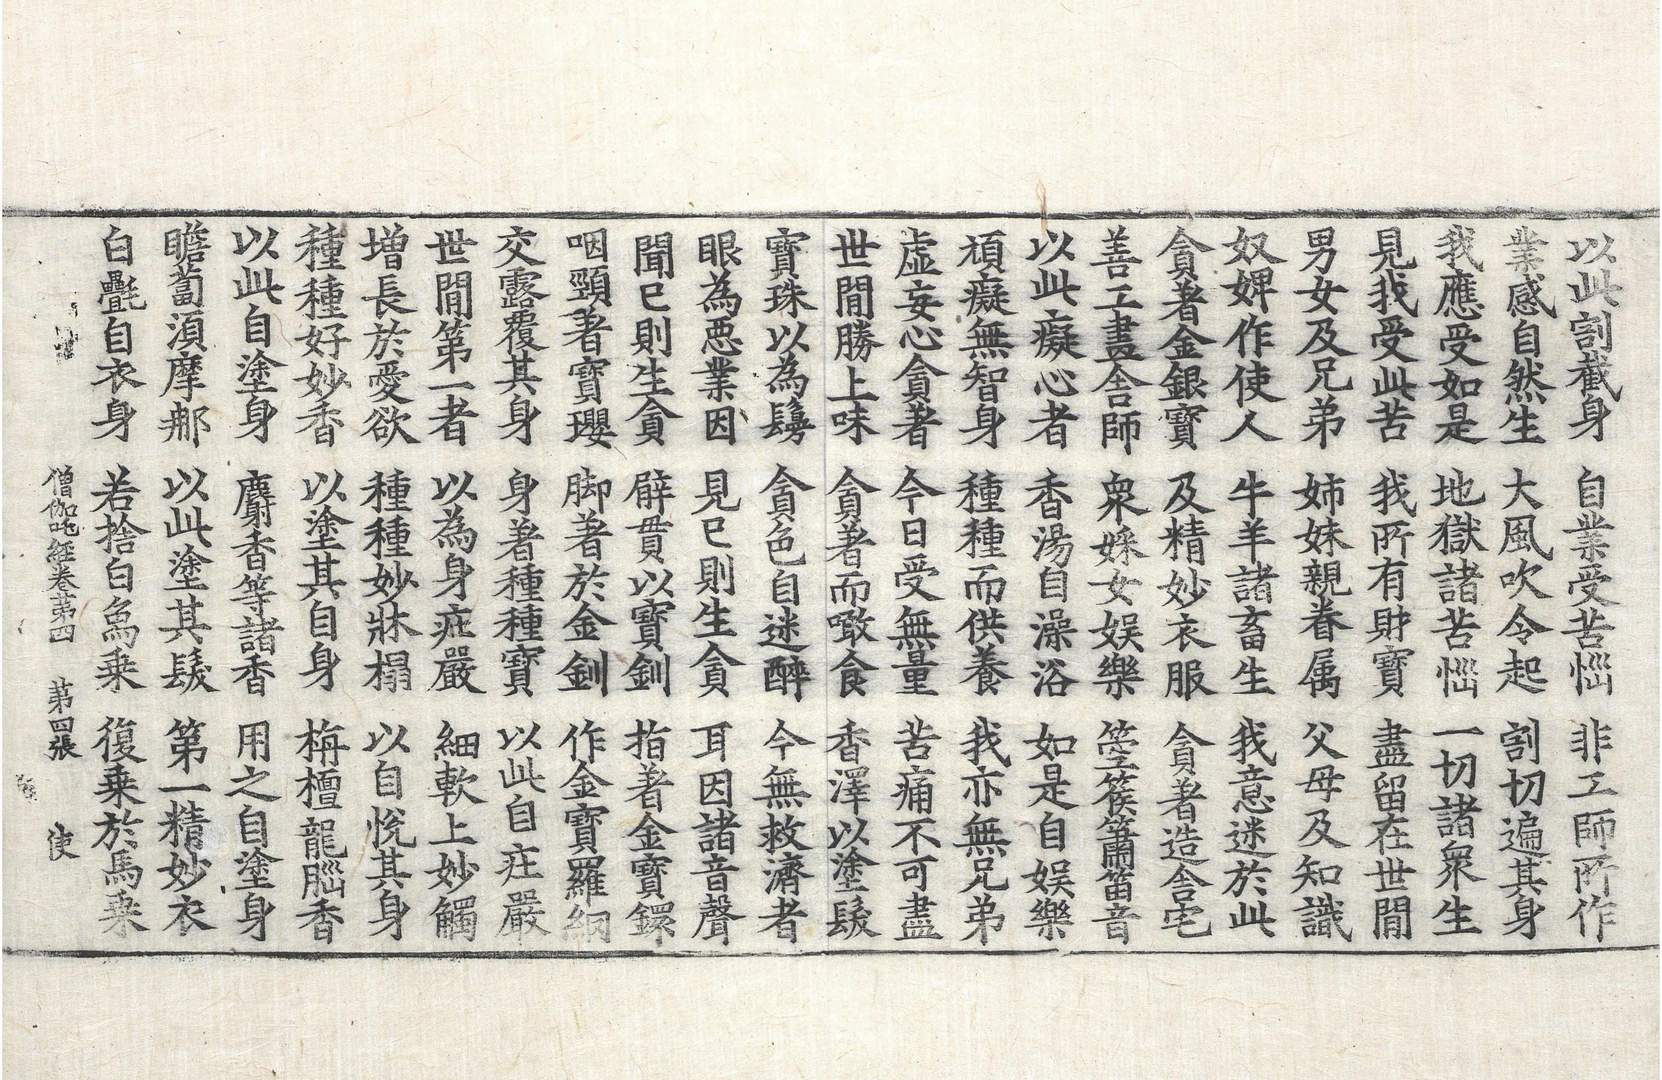 以此割截身　自業受苦惱　非工師所作
業感自然生　大風吹令起　割切遍其身
我應受如是　地獄諸苦惱　一切諸衆生
見我受此苦　我所有財寶　盡留在世間
男女及兄弟　姉妹親眷属　父母及知識
奴婢作使人　牛羊諸畜生　我意迷於此
貪著金銀寶　及精妙衣服　貪著造舎宅
善工畫舎師　衆婇女娱樂　箜篌簫笛音
以此癡心者　香湯自澡浴　如是自娱樂
頑癡無智身　種種而供養　我亦無兄弟
虛妄心貪著　今日受無量　苦痛不可盡
世間勝上味　貪著而噉食　香澤以塗髮
寶珠以為鬘　貪色自迷醉　今無救濟者
眼為惡業因　見已則生貪　耳因諸音聲
聞已則生貪　臂貫以寶釧　指著金寶鐶
咽頸著寶瓔　脚著於金釧　作金寶羅網
交露覆其身　身著種種寶　以此自疘嚴
世間第一者　以為身疘嚴　細軟上妙觸
增長於愛欲　種種妙牀榻　以自悅其身
種種好妙香　以塗其自身　栴檀龍腦香
以此自塗身　麝香等諸香　用之自塗身
瞻蔔湏摩郍　以此塗其髮　第一精妙衣
白㲲自衣身　若捨白𩵋乗　復乗於馬乗
僧伽吒經卷苐四　苐四張　使